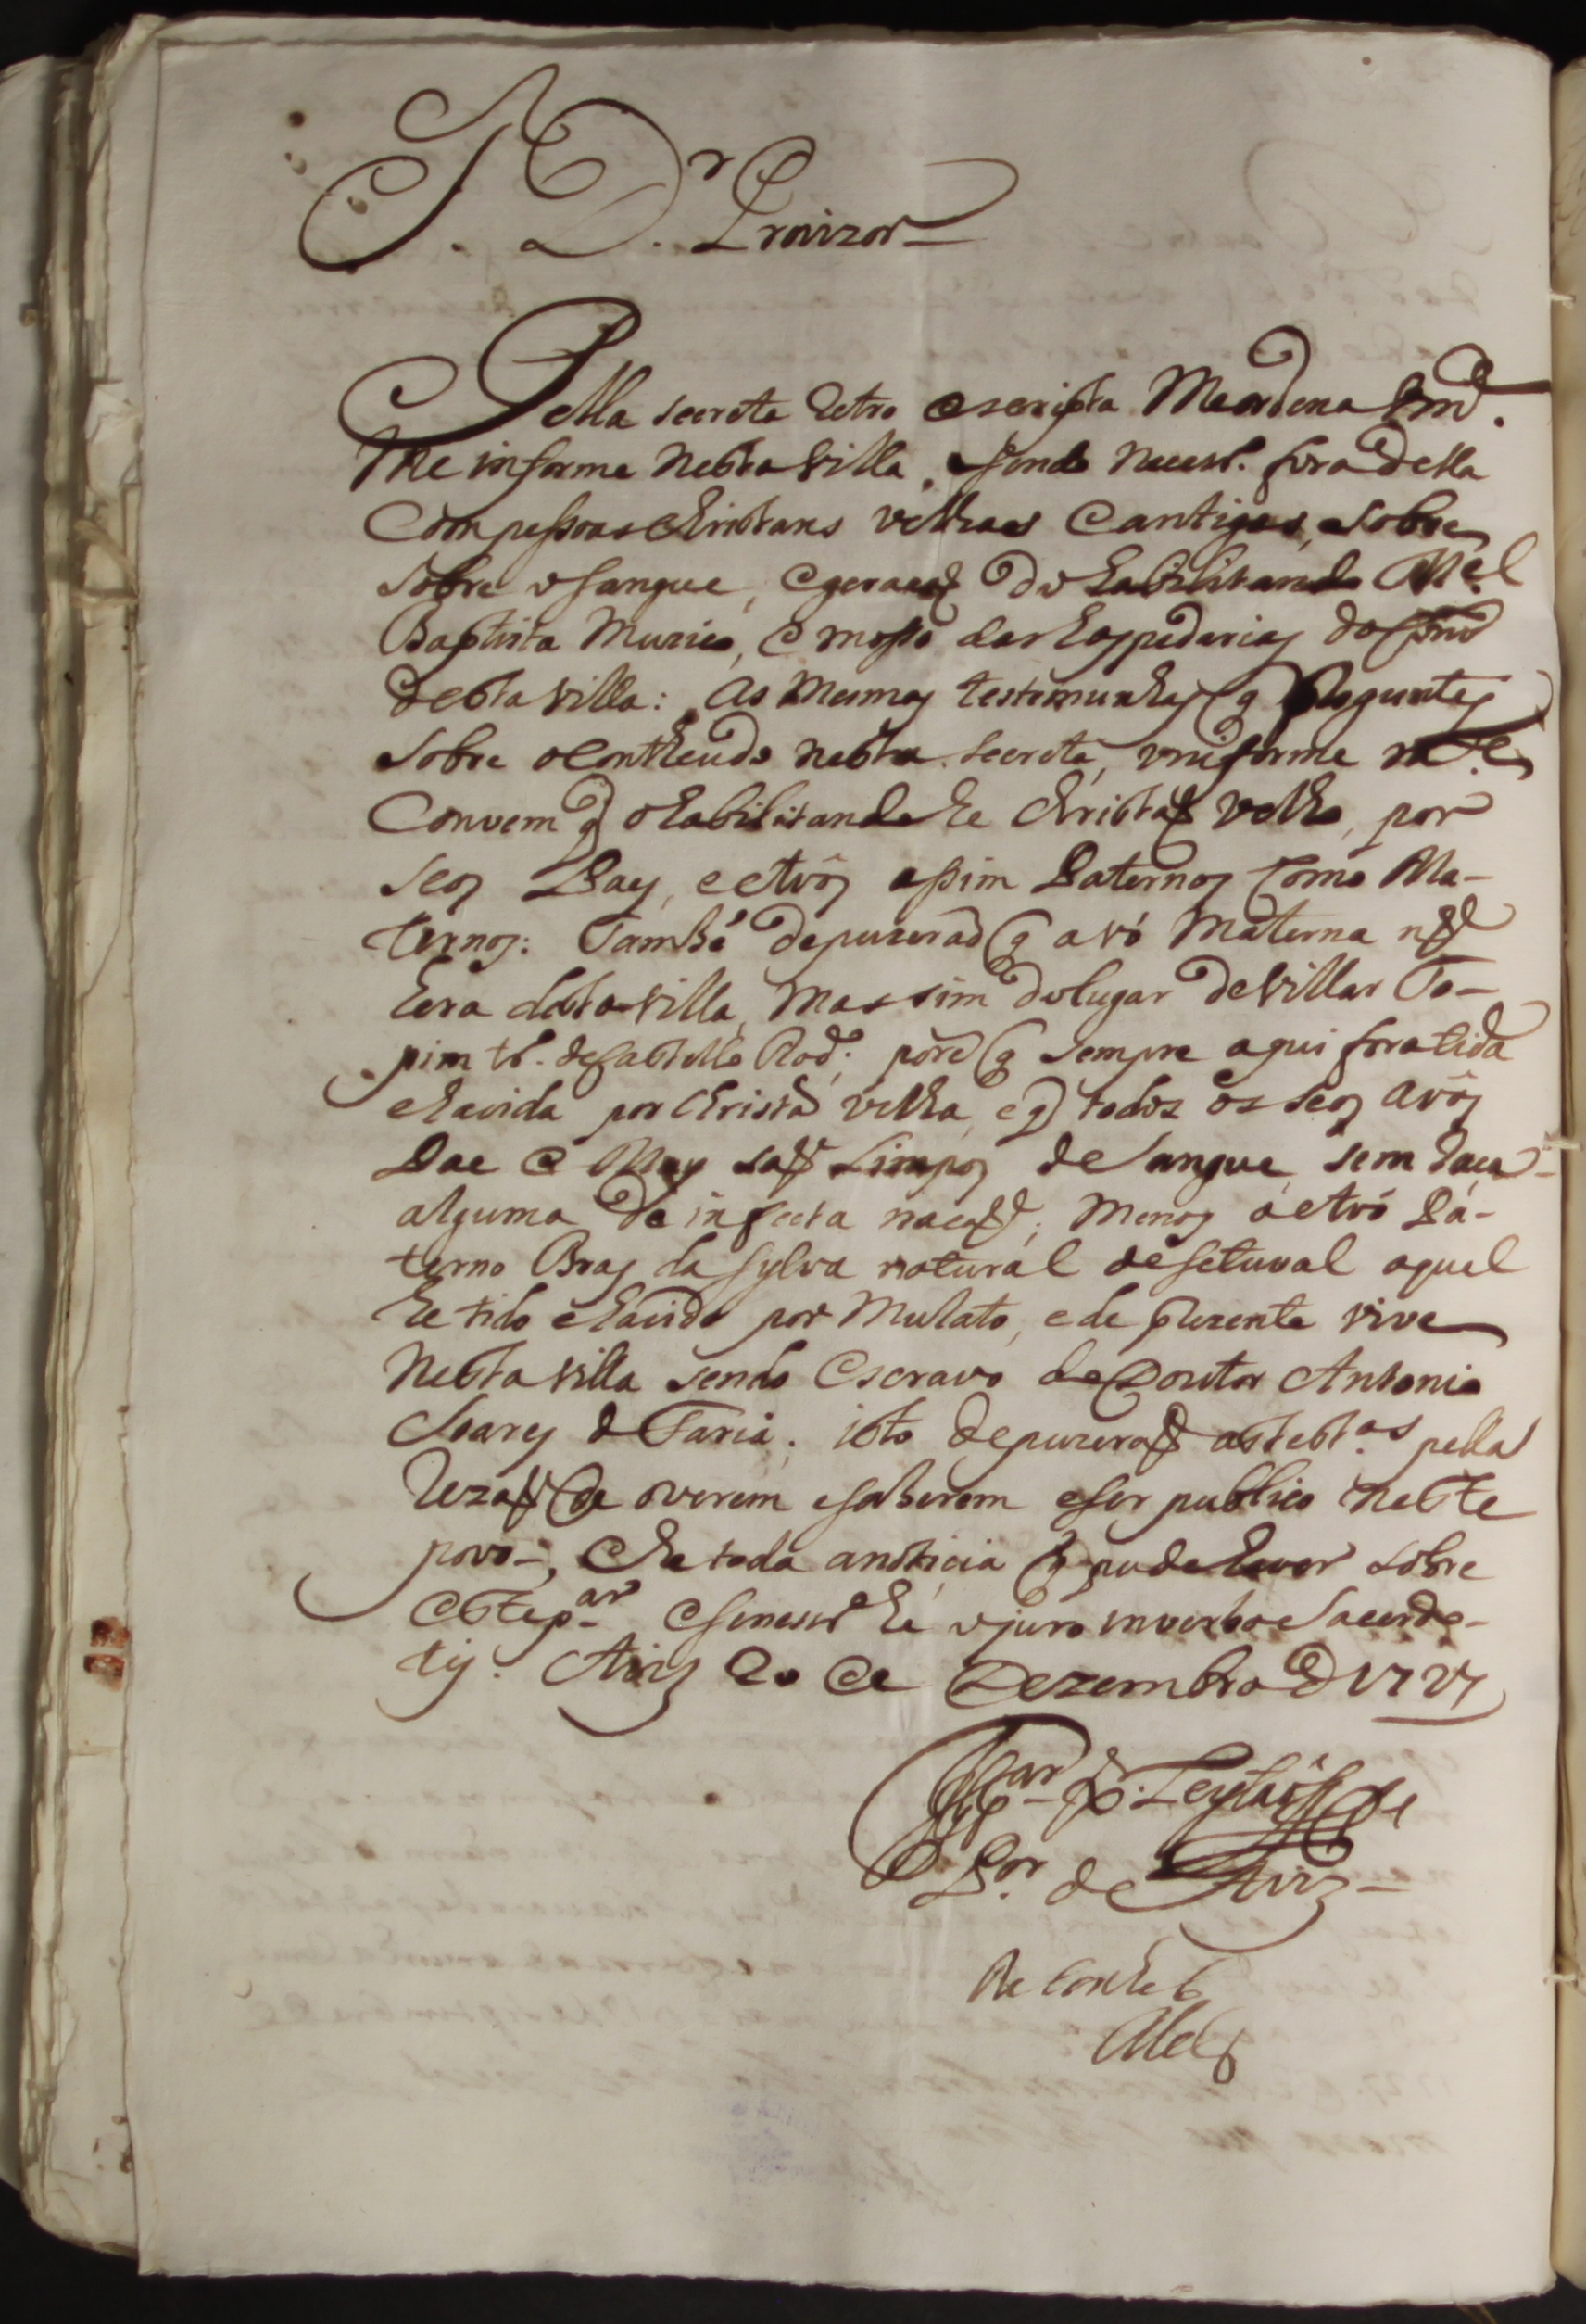 S. Dr. Provizor
Pella secreta retro escripta Me ordena Vm.
Me informe nesta villa, e sendo necess. fora della
Com pessoas christans velhas e antigas, e sobre
sobre o sangue, e geraçaõ do habilitando Mel
Baptista Muzico, e mosso das hospedarias do
desta villa: As mesmas testemunhas q preguntey
sobre o contheudo nesta secreta, uniforme
Convem q o habilitando he christaõ velho, por
seos Pays, e Avós assim Paternos como Ma-
ternos: També depuzeraõ q a vó Materna naõ
hera desta villa, mas sim do lugar de Villar To-
pim tr. de Castello Rod.; porê q sempre aqui fora tida
e havida por christã velha, e q todos os seos avós
Pae e May saõ Limpos de sangue, sem raça
alguma de infecta naçaõ; Menos o Avó Pa-
terno Bras da Sylva natural de Setuval aquel
he tido e havido por Mulato, e de prezente vive
Nesta villa sendo escravo do Doutor Antonio
Soares de Faria; isto depuzeraõ as test.as pella
rezaõ de overem e saberem e ser publico neste
povo, e he toda a noticia q pude haver sobre
este p.ar e sendo necess. o juro in verbo Sacerdo-
tis. Aviz 20 de Dezembro de 1727
Leytaõ
P.or de Aviz
Reconheço